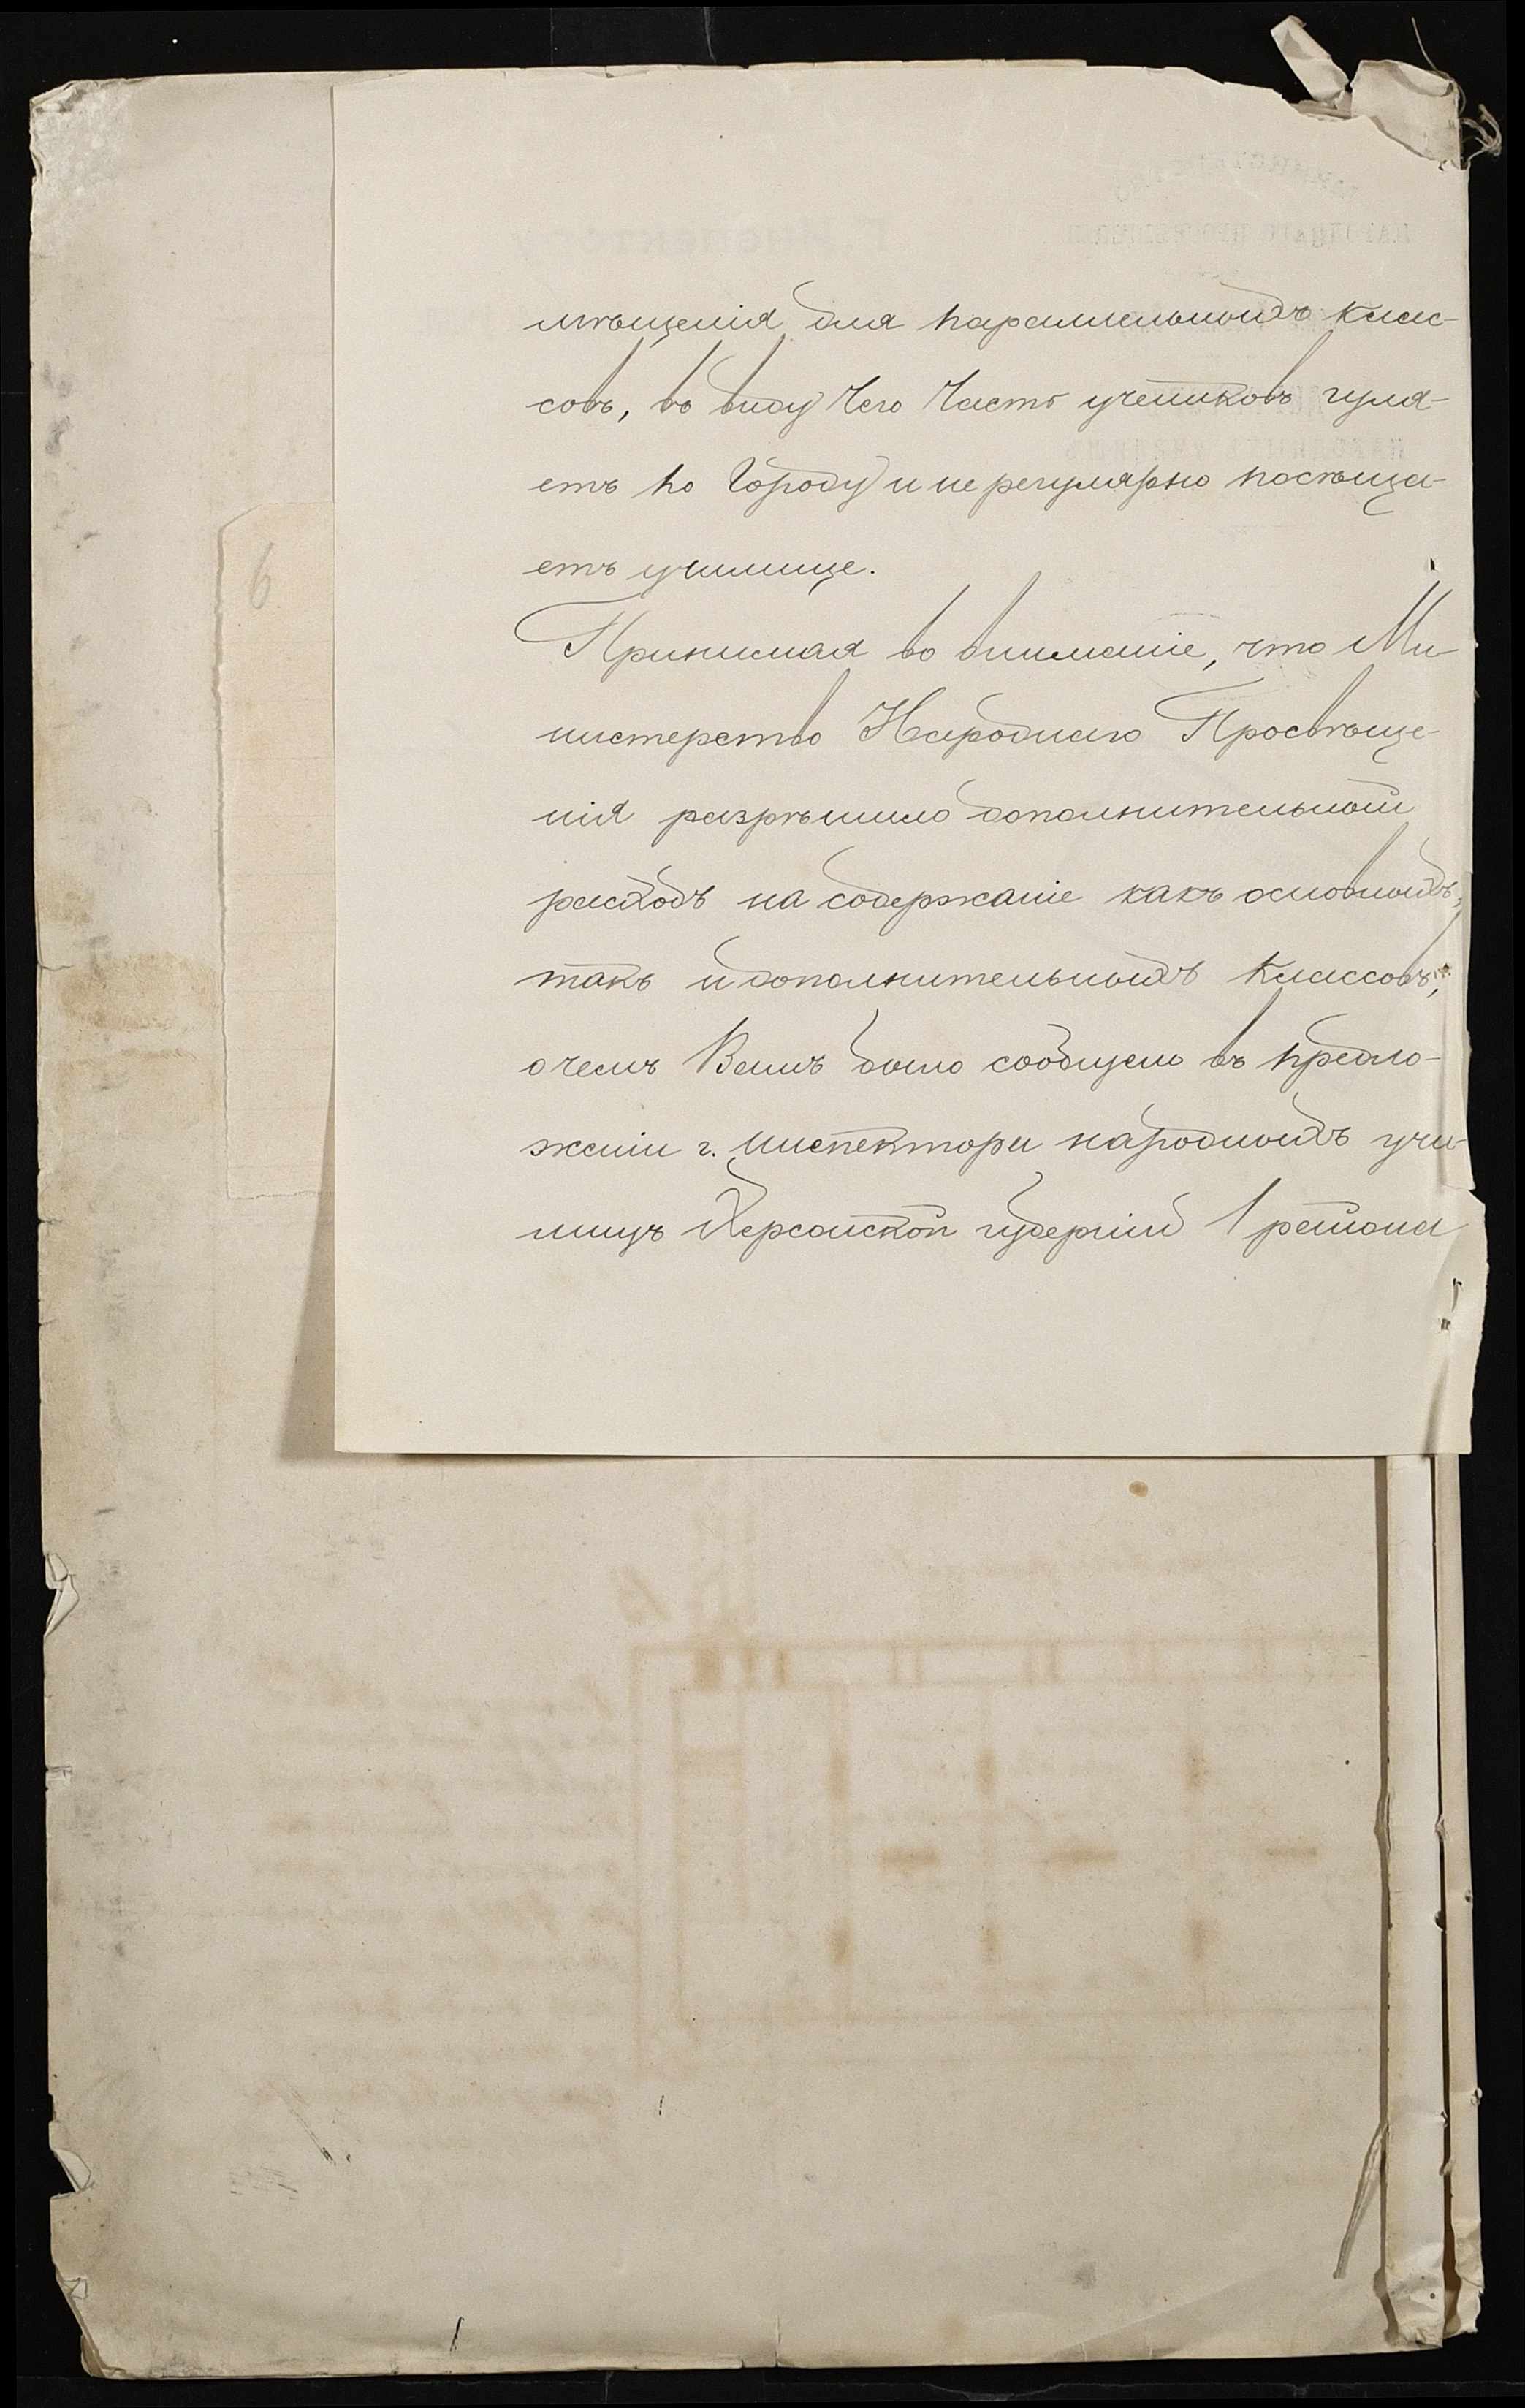 мѣщенія для параллельныхъ клас-
совъ, въ виду чего часть учениковъ гуля-
етъ по городу и не регулярно посѣща-
етъ училище.
Принимая во вниманіе, что Ми-
нистерство Народнаго Просвѣще-
нія разрѣшило дополнительный
расходъ на содержаніе какъ основныхъ,
такъ и дополнительныхъ классовъ,
о чемъ Вамъ было сообщено въ предло-
женіи г. Инспектора народныхъ учи-
лищъ Херсонской губерніи 1 района
6